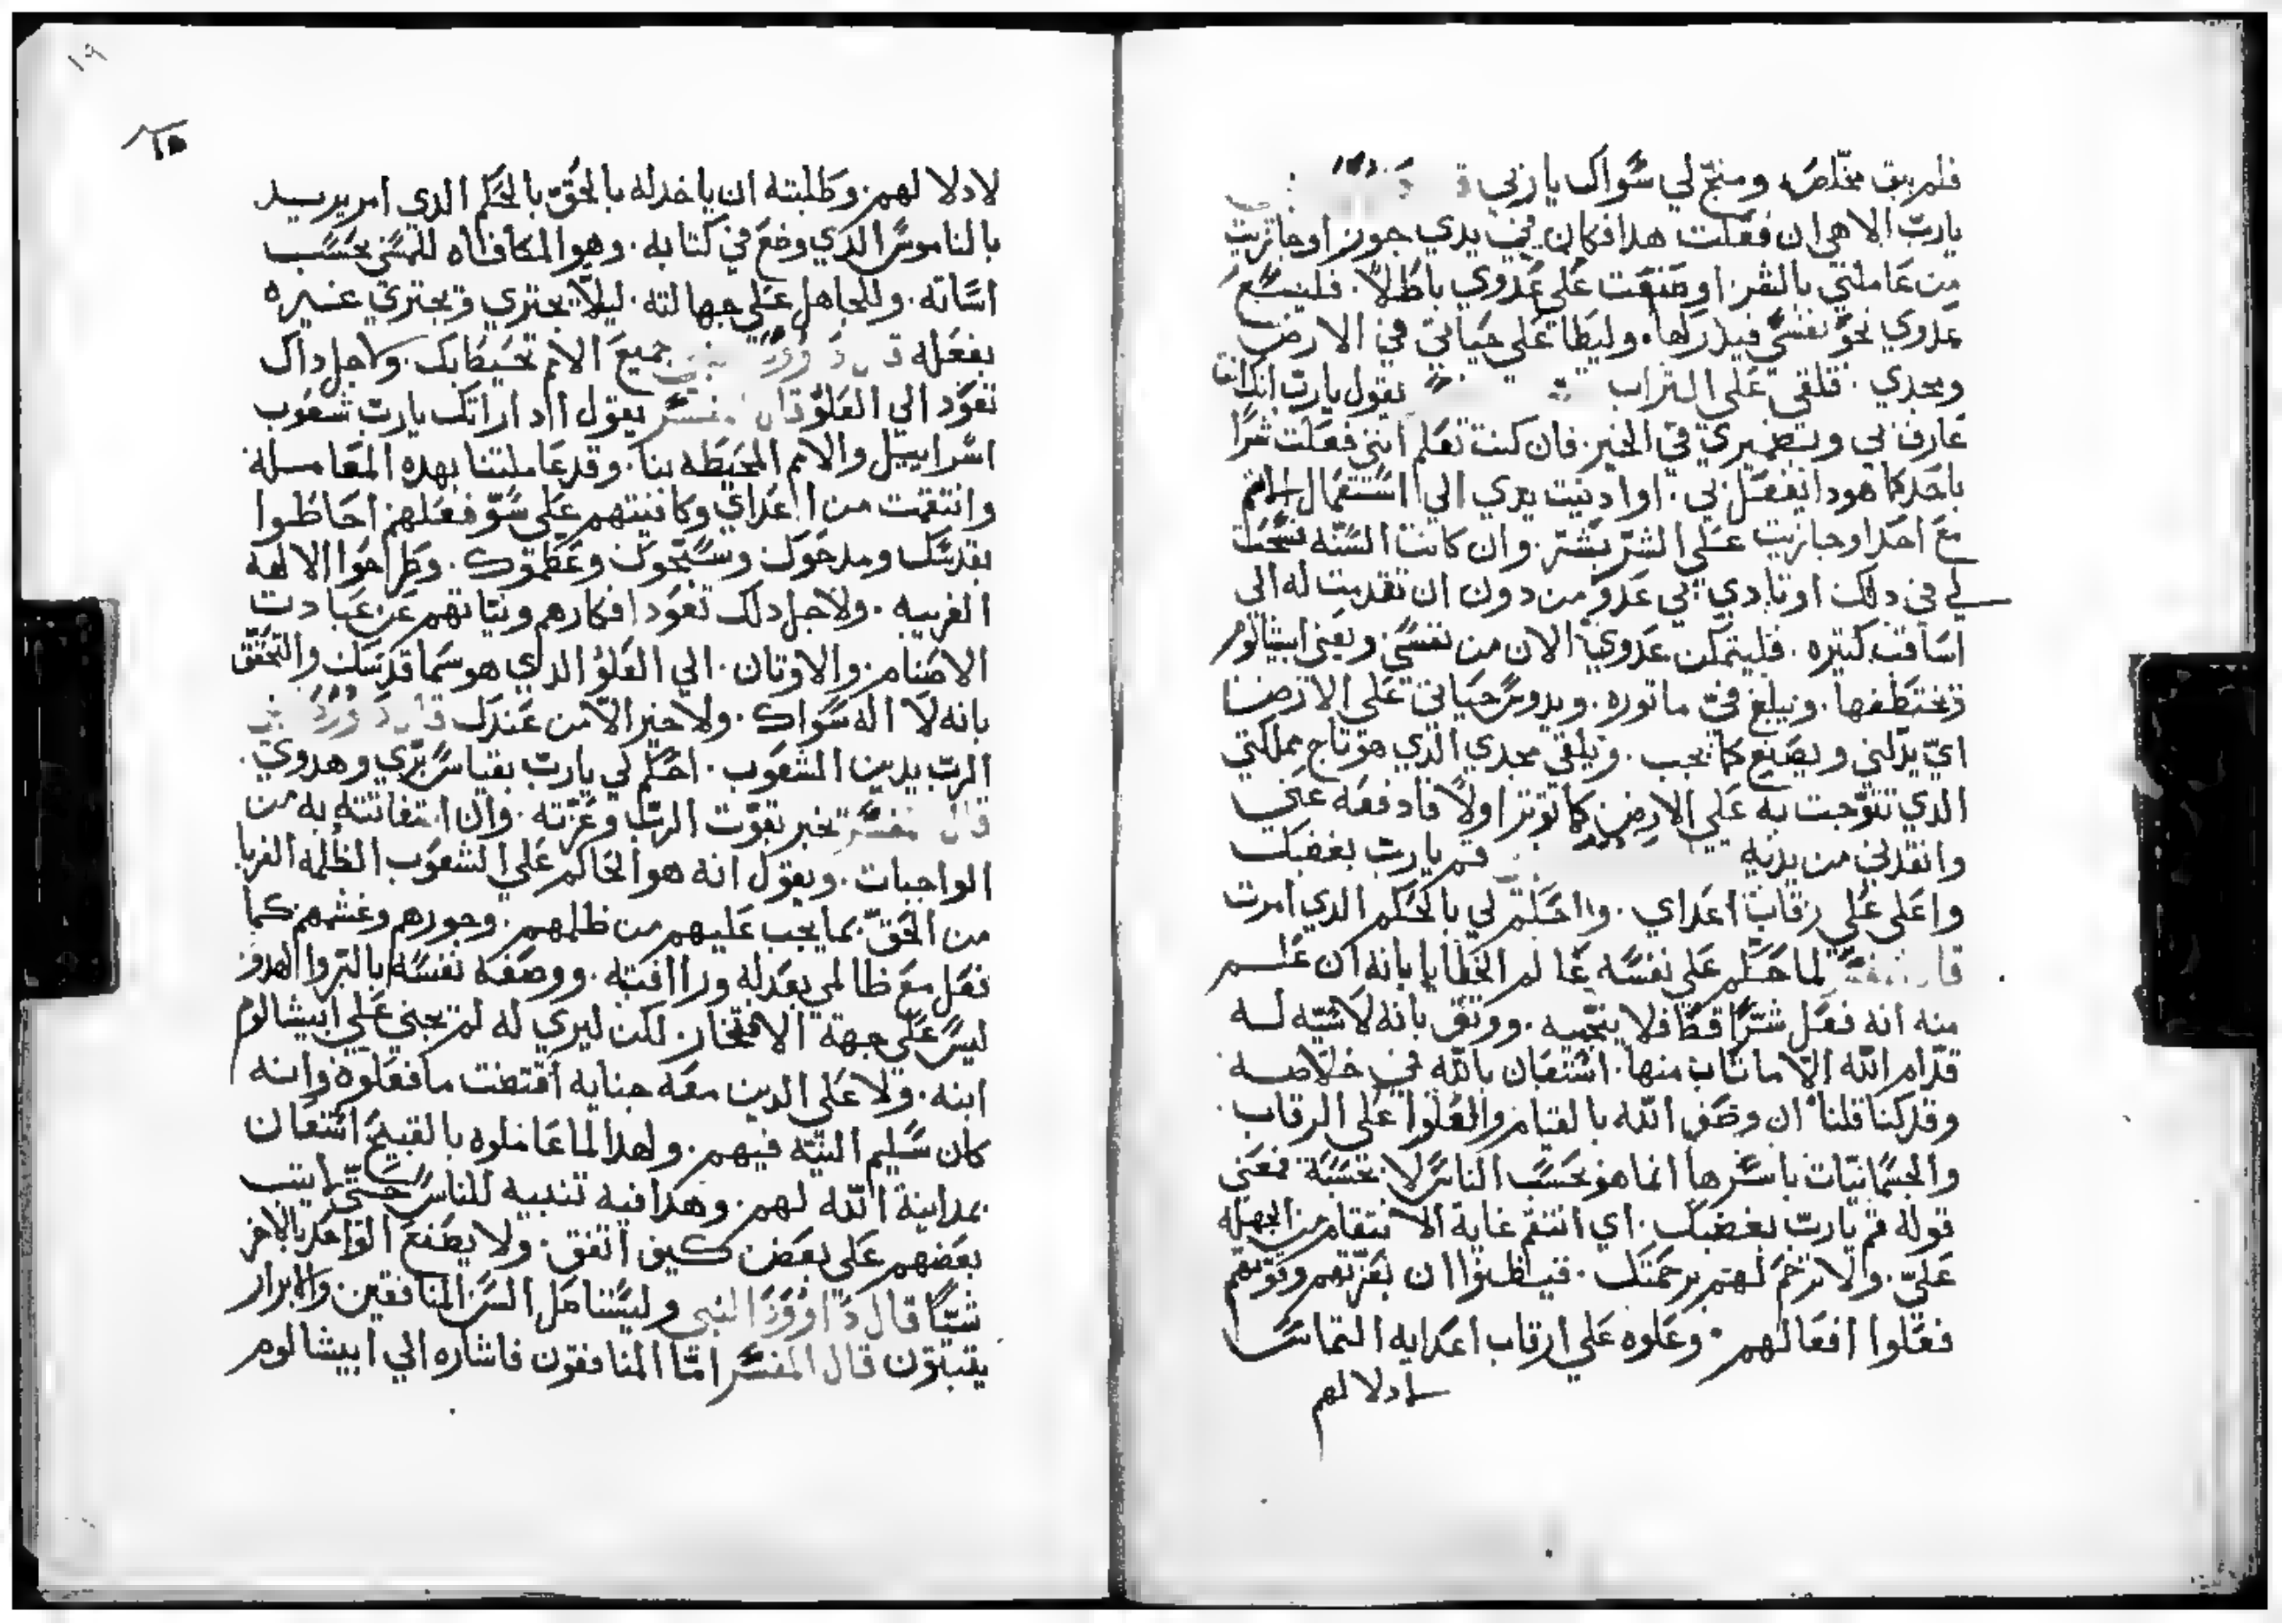 فلم يبق مخلص ومنجّ لي سواك يا ربي
يا ربّ الاهي ان فعلت هدا فكان في يدي جور او جازيت
من عاملني بالشر او ضيقت على عدوي باطلاً. فليتبع
عدوي نحو نفسي فيدركها. وليطا على حياتي في الارض
ومجدي. فلقي على التراب يقول يا رب انك انت
عارف بي وبضميري في الخير. فان كنت تعلم انني فعلت شراً
باحد كما هودا يفعل بي. او ادنيت يدي الي استعمال الاتم
مع احد او جازيت على الشر بشر. وان كانت السنه تسمحت
لي في دلك او تادي بي عدو من دون ان تقدمت له الي
اساقت كتيره. فليتمكن عدوي الان من نفسي ويعني ابيشالوم
فيختطفها. ويبلغ فيّ ماتوره. ويدوس حياتي على الارض
اي يدلني ويصنع كما يحب. ويلقي مجدي الدي هو تاج مملكتي
الدي تتوجت به على الارض كما توتر اولاً فادفعه عني
وانقدني من يديه قم يا رب بغضبك
واعلى على رقاب اعداي. واحكم لي بالحكم الدي امرت
قال المفسر لما حكم على نفسه عالم الخطايا بانه ان علم
منه انه فعل شرّاً قط فلا ينجّيه. ووتق بانه لا شيّه له
قدّام اللّه الّا ما تاب منها. استعان باللّه في خلاصه
وقد كنا قلنا ان وصف اللّه بالقيام والعلوا على الرقاب.
والجسمانيّات باسرها انما هو بحسب الناس لا بحسبه فمعني
قوله قم يا ربّ بغضبك. اي انتقم غاية الانتقام من الجهله
عليّ. ولا ترحم لهم برحمتك. فيظنوا ان بعزتهم وقوتهم
فعلوا افعالهم. وعلوه على ارقاب اعدايه التماسا
لادلالهم
١٩
١٥
لادلالهم. وطلبته ان ياخد له بالحقّ بالحكم الدي امر يريد
بالناموس الدي وضع في كتابه. وهو المكافاه للمسي بحسب
اساته. وللجاهل على جهالته. ليلا يجتري ويجتري غيره
بفعله قال داوود النبي جميع الامم تحيط بك. ولاجل داك
تعود الي العلوّ قال المفسر يقول اد اراتك يا ربّ شعوب
اسراييل والامم المحيطه بنا. وقد عاملتنا بهده المعامله
وانتقمت من اعداي وكافيتهم على سوّ فعلهم احاطوا
بقدسك ومدحوك وسبّحوك وعظموك. وطراحوا الالهه
الغريبه. ولاجل دلك تعود افكارهم ونياتهم عن عبادت
الاصنام. والاوتان. الي العلوّ الدي هو سما قدسك والتحقّق
بانه لا اله سواك. ولا خير الّا من عندك قال داوود النبي
الرب يدين الشعوب. احكم لي يا رب بقياس برّي وهدوي.
قال المفسر تخبر بقوّت الربّ وعزّته. وان استغاتته به من
الواجبات. ويقول انه هو الحاكم على الشعوب الظلمه الغربا
من الحقّ بما يجب عليهم من ظلمهم. وجورهم وغشمهم كما
فعل مع ظالمي بعدله وراافته. ووصفه نفسه بالبر والهدو
ليس على جهة الافتخار. لكن ليري له لم يجني على ابيشالوم
ابنه. ولا على الدين معه جنايه اقتضت ما فعلوه وانه
كان سليم النيّه فيهم. ولهدا لما عاملوه بالقبيح استعان
بمداينة اللّه لهم. وهدا فيه تنبيه للناس حتّى لا يتب
بعضهم على بعض كيف اتفق. ولا يصنع الواحد بالاخر
شيّاً قال داوود النبي وليستاهل السر المنافقين والابرار
يتبتون قال المفسر امّا المنافقون فاشاره الي ابيشالوم